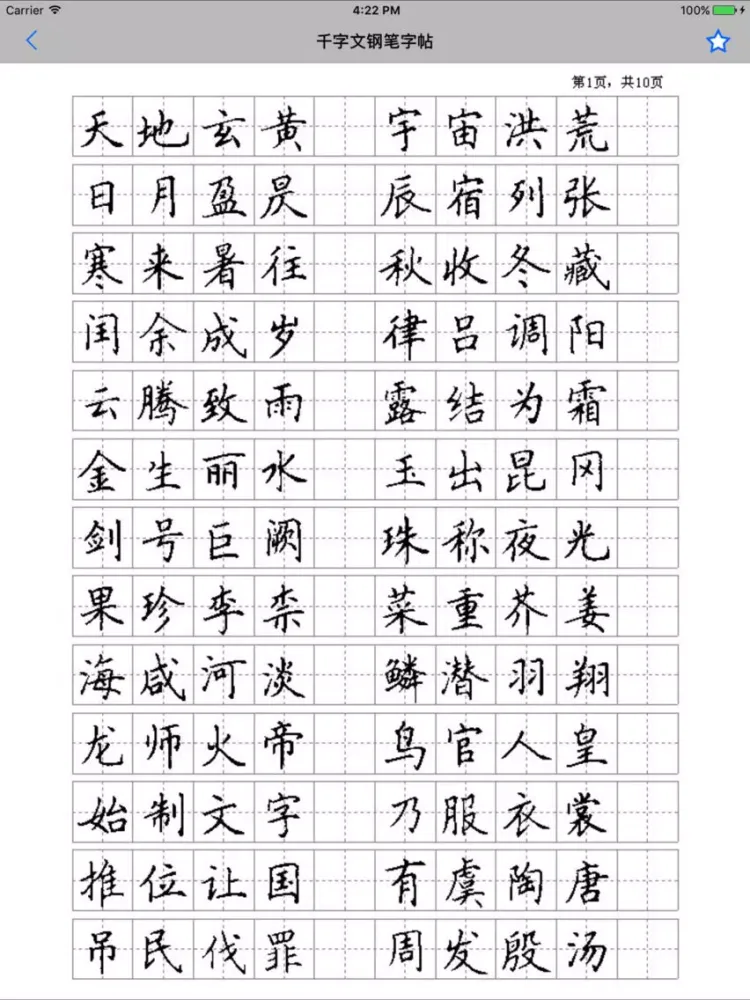 Carrier 4:22 PM 100%
千字文钢笔字帖
第1页，共10页
天地玄黄 宇宙洪荒
日月盈昃 辰宿列张
寒来暑往 秋收冬藏
闰余成岁 律吕调阳
云腾致雨 露结为霜
金生丽水 玉出昆冈
剑号巨阙 珠称夜光
果珍李柰 菜重芥姜
海咸河淡 鳞潜羽翔
龙师火帝 鸟官人皇
始制文字 乃服衣裳
推位让国 有虞陶唐
吊民伐罪 周发殷汤